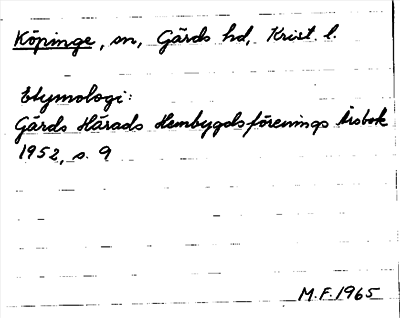 Köpinge, sn, Gärds hd, Krist. l.
Etymologi:
Gärds Härads Hembygdsförenings Årsbok
1952, s. 9
M.F. 1965